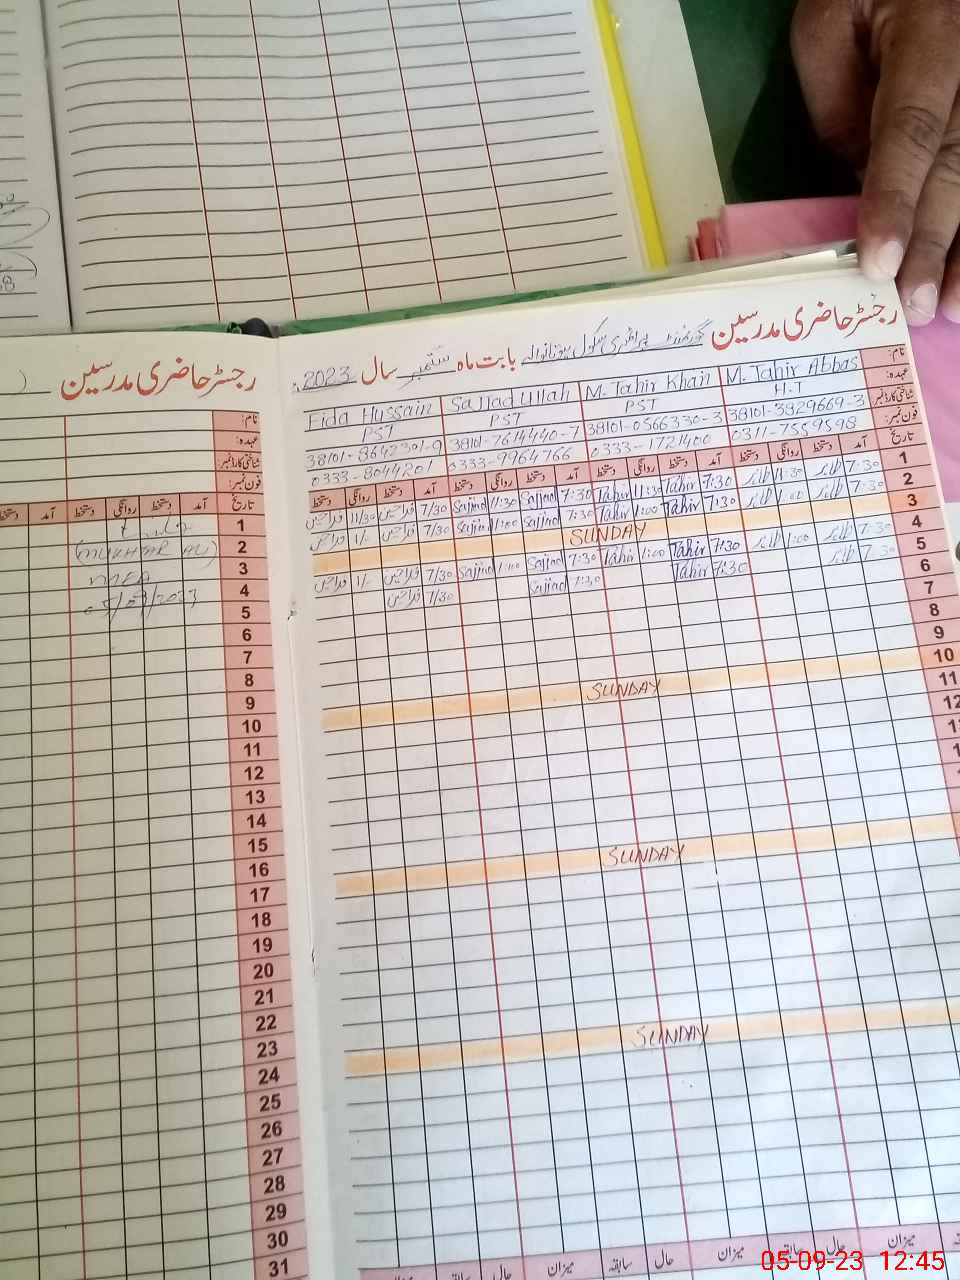 رجسٹر حاضری مدرسین گورنمنٹ پرائمری سکول بابت ماہ ستمبر سال 2023
نام: M. Tahir Abbas M. Tahir Khan Sajjad Ullah Fida Hussain
عہدہ: H.T PST PST PST
شناختی کارڈ نمبر: 38101-3829669-3 38101-0566330-3 38101-7614440-7 38101-8642301-9
فون نمبر: 0311-7559598 0333-1721400 0333-9964766 0333-8044201
تاریخ آمد دستخط روانگی دستخط آمد دستخط روانگی دستخط آمد دستخط روانگی دستخط آمد دستخط روانگی دستخط
1 7:30 طاہر 11:30 طاہر 7:30 Tahir 11:30 Tahir 7:30 Sajjad 11:30 Sajjad 7/30 11/30
2 7:30 طاہر 1:00 طاہر 7:30 Tahir 1:00 Tahir 7:30 Sajjad 1:00 Sajjad 7/30 1/-
3 SUNDAY
4 7:30 طاہر 1:00 طاہر 7:30 Tahir 1:00 Tahir 7:30 Sajjad 1:00 Sajjad 7/30 1/-
5 7:30 طاہر 7:30 Tahir 7:30 Sajjad 7/30
6
7
8
9
10 SUNDAY
11
12
SUNDAY
SUNDAY
میزان حال سابقہ میزان حال سابقہ میزان حال
رجسٹر حاضری مدرسین
نام:
عہدہ:
شناختی کارڈ نمبر:
فون نمبر:
تاریخ آمد دستخط روانگی دستخط آمد دستخط
1
2 (MUKHTAR ALI)
3 MEA
4 05/09/2023
5
6
7
8
9
10
11
12
13
14
15
16
17
18
19
20
21
22
23
24
25
26
27
28
29
30
31
05-09-23 12:45